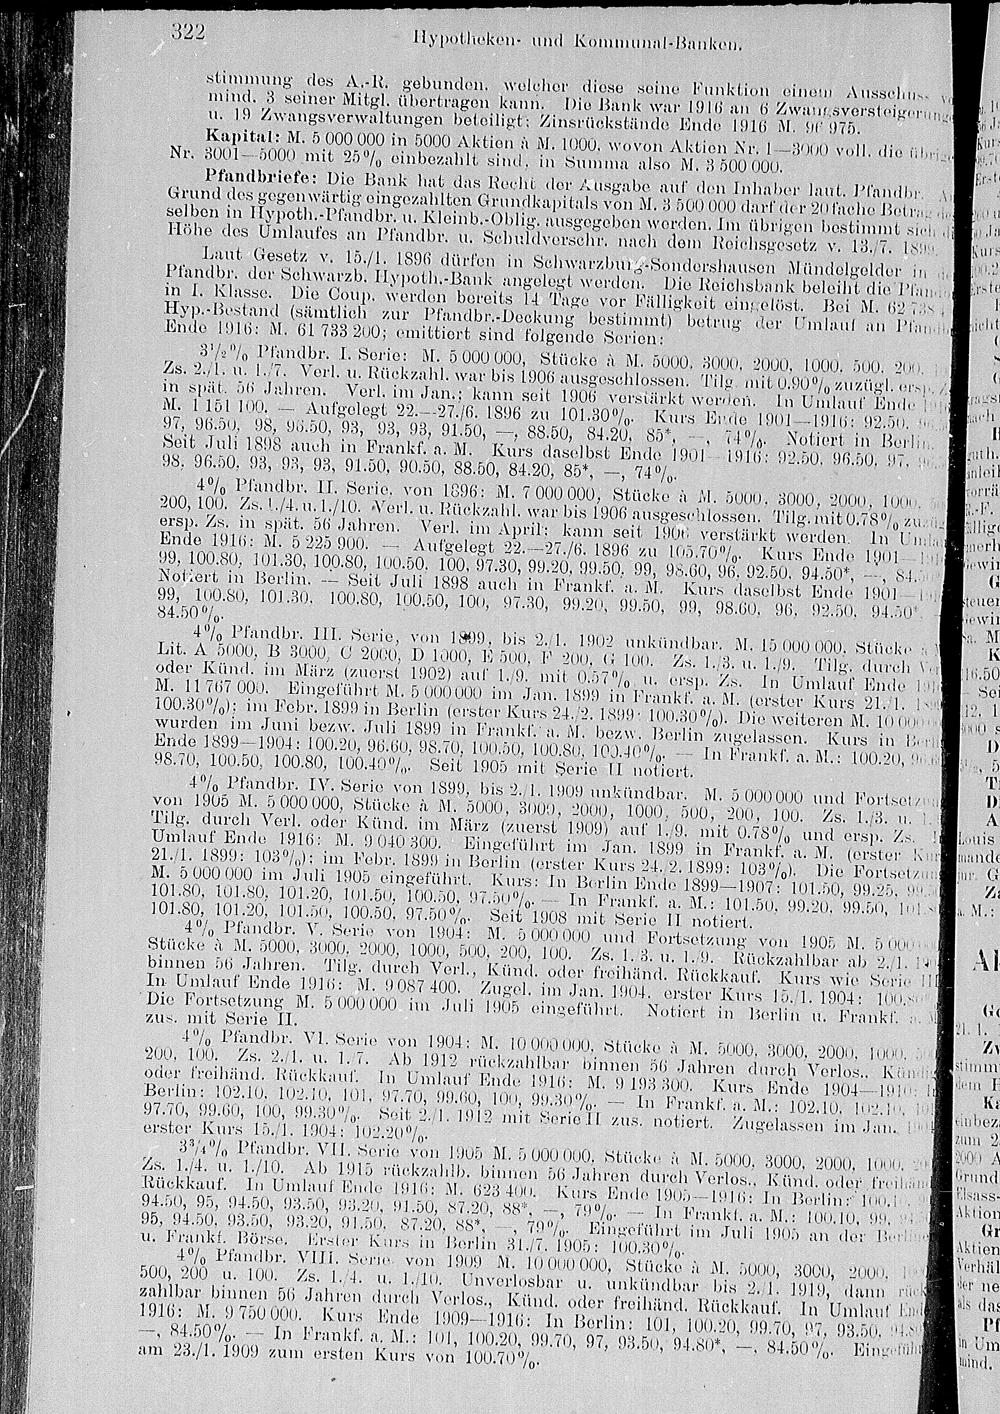 322
Hypotheken- und Kommunal-Banken.
stimmung des A.-R. gebunden, welcher diese seine Funktion einem Ausschuss
mind. 3 seiner Mitgl. übertragen kann. Die Bank war 1916 an 6 Zwangsversteigerungen
u. 19 Zwangsverwaltungen beteiligt; Zinsrückstände Ende 1916 M. 975.
Kapital: M. 5 000 000 in 5000 Aktien à M. 1000, wovon Aktien Nr. 1—3000 voll, die übrigen
Nr. 3001—5000 mit 25% einbezahlt sind, in Summa also M. 3 500 000.
Pfandbriefe: Die Bank hat das Recht der Ausgabe auf den Inhaber laut. Pfandbr.
Grund des gegenwärtig eingezahlten Grundkapitals von M. 3 500 000 darf der 20 fache Betrag
selben in Hypoth.-Pfandbr. u. Kleinb.-Oblig. ausgegeben werden. Im übrigen bestimmt sich
Höhe des Umlaufes an Pfandbr. u. Schuldverschr. nach dem Reichsgesetz v. 13./7. 1899.
Laut Gesetz v. 15./1. 1896 dürfen in Schwarzburg-Sondershausen Mündelgelder in
Pfandbr. der Schwarzb. Hypoth.-Bank angelegt werden. Die Reichsbank beleiht die
in I. Klasse. Die Coup. werden bereits 14 Tage vor Fälligkeit eingelöst. Bei M.
Hyp.-Bestand (sämtlich zur Pfandbr.-Deckung bestimmt) betrug der Umlauf an
Ende 1916: M. 61 733 200; emittiert sind folgende Serien:
3½% Pfandbr. I. Serie: M. 5 000 000, Stücke à M. 5000, 3000, 2000, 1000, 500, 200,
Zs. 2./1. u. 1./7. Verl. u. Rückzahl. war bis 1906 ausgeschlossen. Tilg. mit 0.90% zuzügl. ersp.
in spät. 56 Jahren. Verl. im Jan.; kann seit 1906 verstärkt werden. In Umlauf Ende
M. 1 151 100. — Aufgelegt 22.—27./6. 1896 zu 101.30%. Kurs Ende 1901—1916: 92.50,
97, 96.50, 98, 96.50, 93, 93, 93, 91.50, —, 88.50, 84.20, 85*, —, 74%. Notiert in Berlin.
Seit Juli 1898 auch in Frankf. a. M. Kurs daselbst Ende 1901—1916: 92.50, 96.50, 97,
98, 96.50, 93, 93, 93, 91.50, 90.50, 88.50, 84.20, 85*, —, 74%.
4% Pfandbr. II. Serie, von 1896: M. 7 000 000, Stücke à M. 5000, 3000, 2000, 1000,
200, 100. Zs. 1./4. u. 1./10. Verl. u. Rückzahl. war bis 1906 ausgeschlossen. Tilg. mit 0.78%
ersp. Zs. in spät. 56 Jahren. Verl. im April; kann seit 1906 verstärkt werden. In Umlauf
Ende 1916: M. 5 225 900. — Aufgelegt 22.—27./6. 1896 zu 105.70%. Kurs Ende 1901—
99, 100.80, 101.30, 100.80, 100.50, 100, 97.30, 99.20, 99.50, 99, 98.60, 96, 92.50, 94.50*, —,
Notiert in Berlin. — Seit Juli 1898 auch in Frankf. a. M. Kurs daselbst Ende 1901—
99, 100.80, 101.30, 100.80, 100.50, 100, 97.30, 99.20, 99.50, 99, 98.60, 96, 92.50, 94.50*,
84.50%.
4% Pfandbr. III. Serie, von 1899, bis 2./1. 1902 unkündbar. M. 15 000 000, Stücke
Lit. A 5000, B 3000, C 2000, D 1000, E 500, F 200, G 100. Zs. 1./3. u. 1./9. Tilg. durch
oder Künd. im März (zuerst 1902) auf 1./9. mit 0.57% u. ersp. Zs. In Umlauf Ende
M. 11 767 000. Eingeführt M. 5 000 000 im Jan. 1899 in Frankf. a. M. (erster Kurs 21./1.
100.30%); im Febr. 1899 in Berlin (erster Kurs 24./2. 1899: 100.30%). Die weiteren M.
wurden im Juni bezw. Juli 1899 in Frankf. a. M. bezw. Berlin zugelassen. Kurs in
Ende 1899—1904: 100.20, 96.60, 98.70, 100.50, 100.80, 100.40%. — In Frankf. a. M.: 100.20,
98.70, 100.50, 100.80, 100.40%. Seit 1905 mit Serie II notiert.
4% Pfandbr. IV. Serie von 1899, bis 2./1. 1909 unkündbar. M. 5 000 000 und Fortsetzung
von 1905 M. 5 000 000, Stücke à M. 5000, 3000, 2000, 1000, 500, 200, 100. Zs. 1./3. u.
Tilg. durch Verl. oder Künd. im März (zuerst 1909) auf 1./9. mit 0.78% und ersp. Zs.
Umlauf Ende 1916: M. 9 040 300. Eingeführt im Jan. 1899 in Frankf. a. M. (erster
21./1. 1899: 103%); im Febr. 1899 in Berlin (erster Kurs 24./2. 1899: 103%). Die Fortsetzung
M. 5 000 000 im Juli 1905 eingeführt. Kurs: In Berlin Ende 1899—1907: 101.50, 99.25,
101.80, 101.80, 101.20, 101.50, 100.50, 97.50%. — In Frankf. a. M.: 101.50, 99.20, 99.50,
101.80, 101.20, 101.50, 100.50, 97.50%. Seit 1908 mit Serie II notiert.
4% Pfandbr. V. Serie von 1904: M. 5 000 000 und Fortsetzung von 1905 M. 5 000
Stücke à M. 5000, 3000, 2000, 1000, 500, 200, 100. Zs. 1./3. u. 1./9. Rückzahlbar ab 2./1.
binnen 56 Jahren. Tilg. durch Verl., Künd. oder freihänd. Rückkauf. Kurs wie Serie III
In Umlauf Ende 1916: M. 9 087 400. Zugel. im Jan. 1904, erster Kurs 15./1. 1904:
Die Fortsetzung M. 5 000 000 im Juli 1905 eingeführt. Notiert in Berlin u. Frankf. a. M.
zus. mit Serie II.
4% Pfandbr. VI. Serie von 1904: M. 10 000 000, Stücke à M. 5000, 3000, 2000, 1000,
200, 100. Zs. 2./1. u. 1./7. Ab 1912 rückzahlbar binnen 56 Jahren durch Verlos.,
oder freihänd. Rückkauf. In Umlauf Ende 1916: M. 9 193 300. Kurs Ende 1904—1910:
Berlin: 102.10, 102.10, 101, 97.70, 99.60, 100, 99.30%. — In Frankf. a. M.: 102.10, 102.10,
97.70, 99.60, 100, 99.30%. Seit 2./1. 1912 mit Serie II zus. notiert. Zugelassen im Jan.
erster Kurs 15./1. 1904: 102.20%.
3¾% Pfandbr. VII. Serie von 1905 M. 5 000 000, Stücke à M. 5000, 3000, 2000, 1000,
Zs. 1./4. u. 1./10. Ab 1915 rückzahlb. binnen 56 Jahren durch Verlos., Künd. oder
Rückkauf. In Umlauf Ende 1916: M. 623 400. Kurs Ende 1905—1916: In Berlin:
94.50, 95, 94.50, 93.50, 93.20, 91.50, 87.20, 88*, —, 79%. — In Frankf. a. M.: 100.10, 99,
95, 94.50, 93.50, 93.20, 91.50, 87.20, 88*, —, 79%. Eingeführt im Juli 1905 an der Berliner
u. Frankf. Börse. Erster Kurs in Berlin 31./7. 1905: 100.30%.
4% Pfandbr. VIII. Serie von 1909 M. 10 000 000, Stücke à M. 5000, 3000, 2000,
500, 200 u. 100. Zs. 1./4. u. 1./10. Unverlosbar u. unkündbar bis 2./1. 1919, dann
zahlbar binnen 56 Jahren durch Verlos., Künd. oder freihänd. Rückkauf. In Umlauf
1916: M. 9 750 000. Kurs Ende 1909—1916: In Berlin: 101, 100.20, 99.70, 97, 93.50,
—, 84.50%. — In Frankf. a. M.: 101, 100.20, 99.70, 97, 93.50, 94.80*, —, 84.50%.
am 23./1. 1909 zum ersten Kurs von 100.70%.